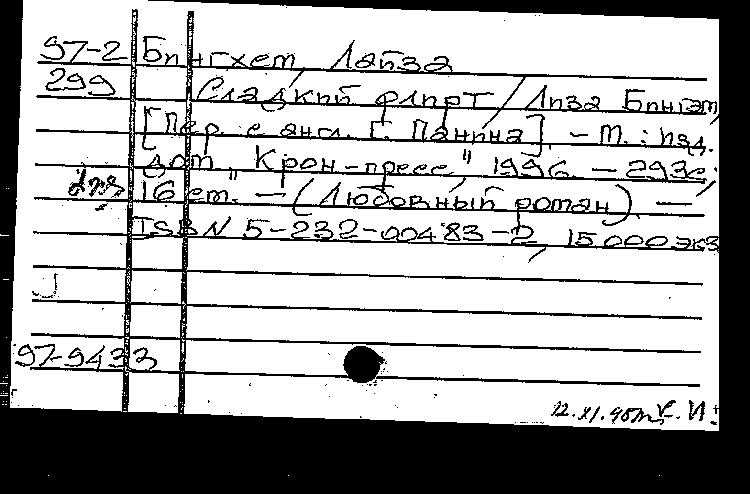 97-2 Бингхем, Лайза
299 Сладкий флирт / Лиза Бингэм,
[Пер. с англ. Г. Панина]. - М. : Изд.
дом "Крон-пресс", 1996. - 293с.;
16 см. - (Любовный роман). -
ISBN 5-232-00483-2, 15.000 экз
97-9433
12.XI.98